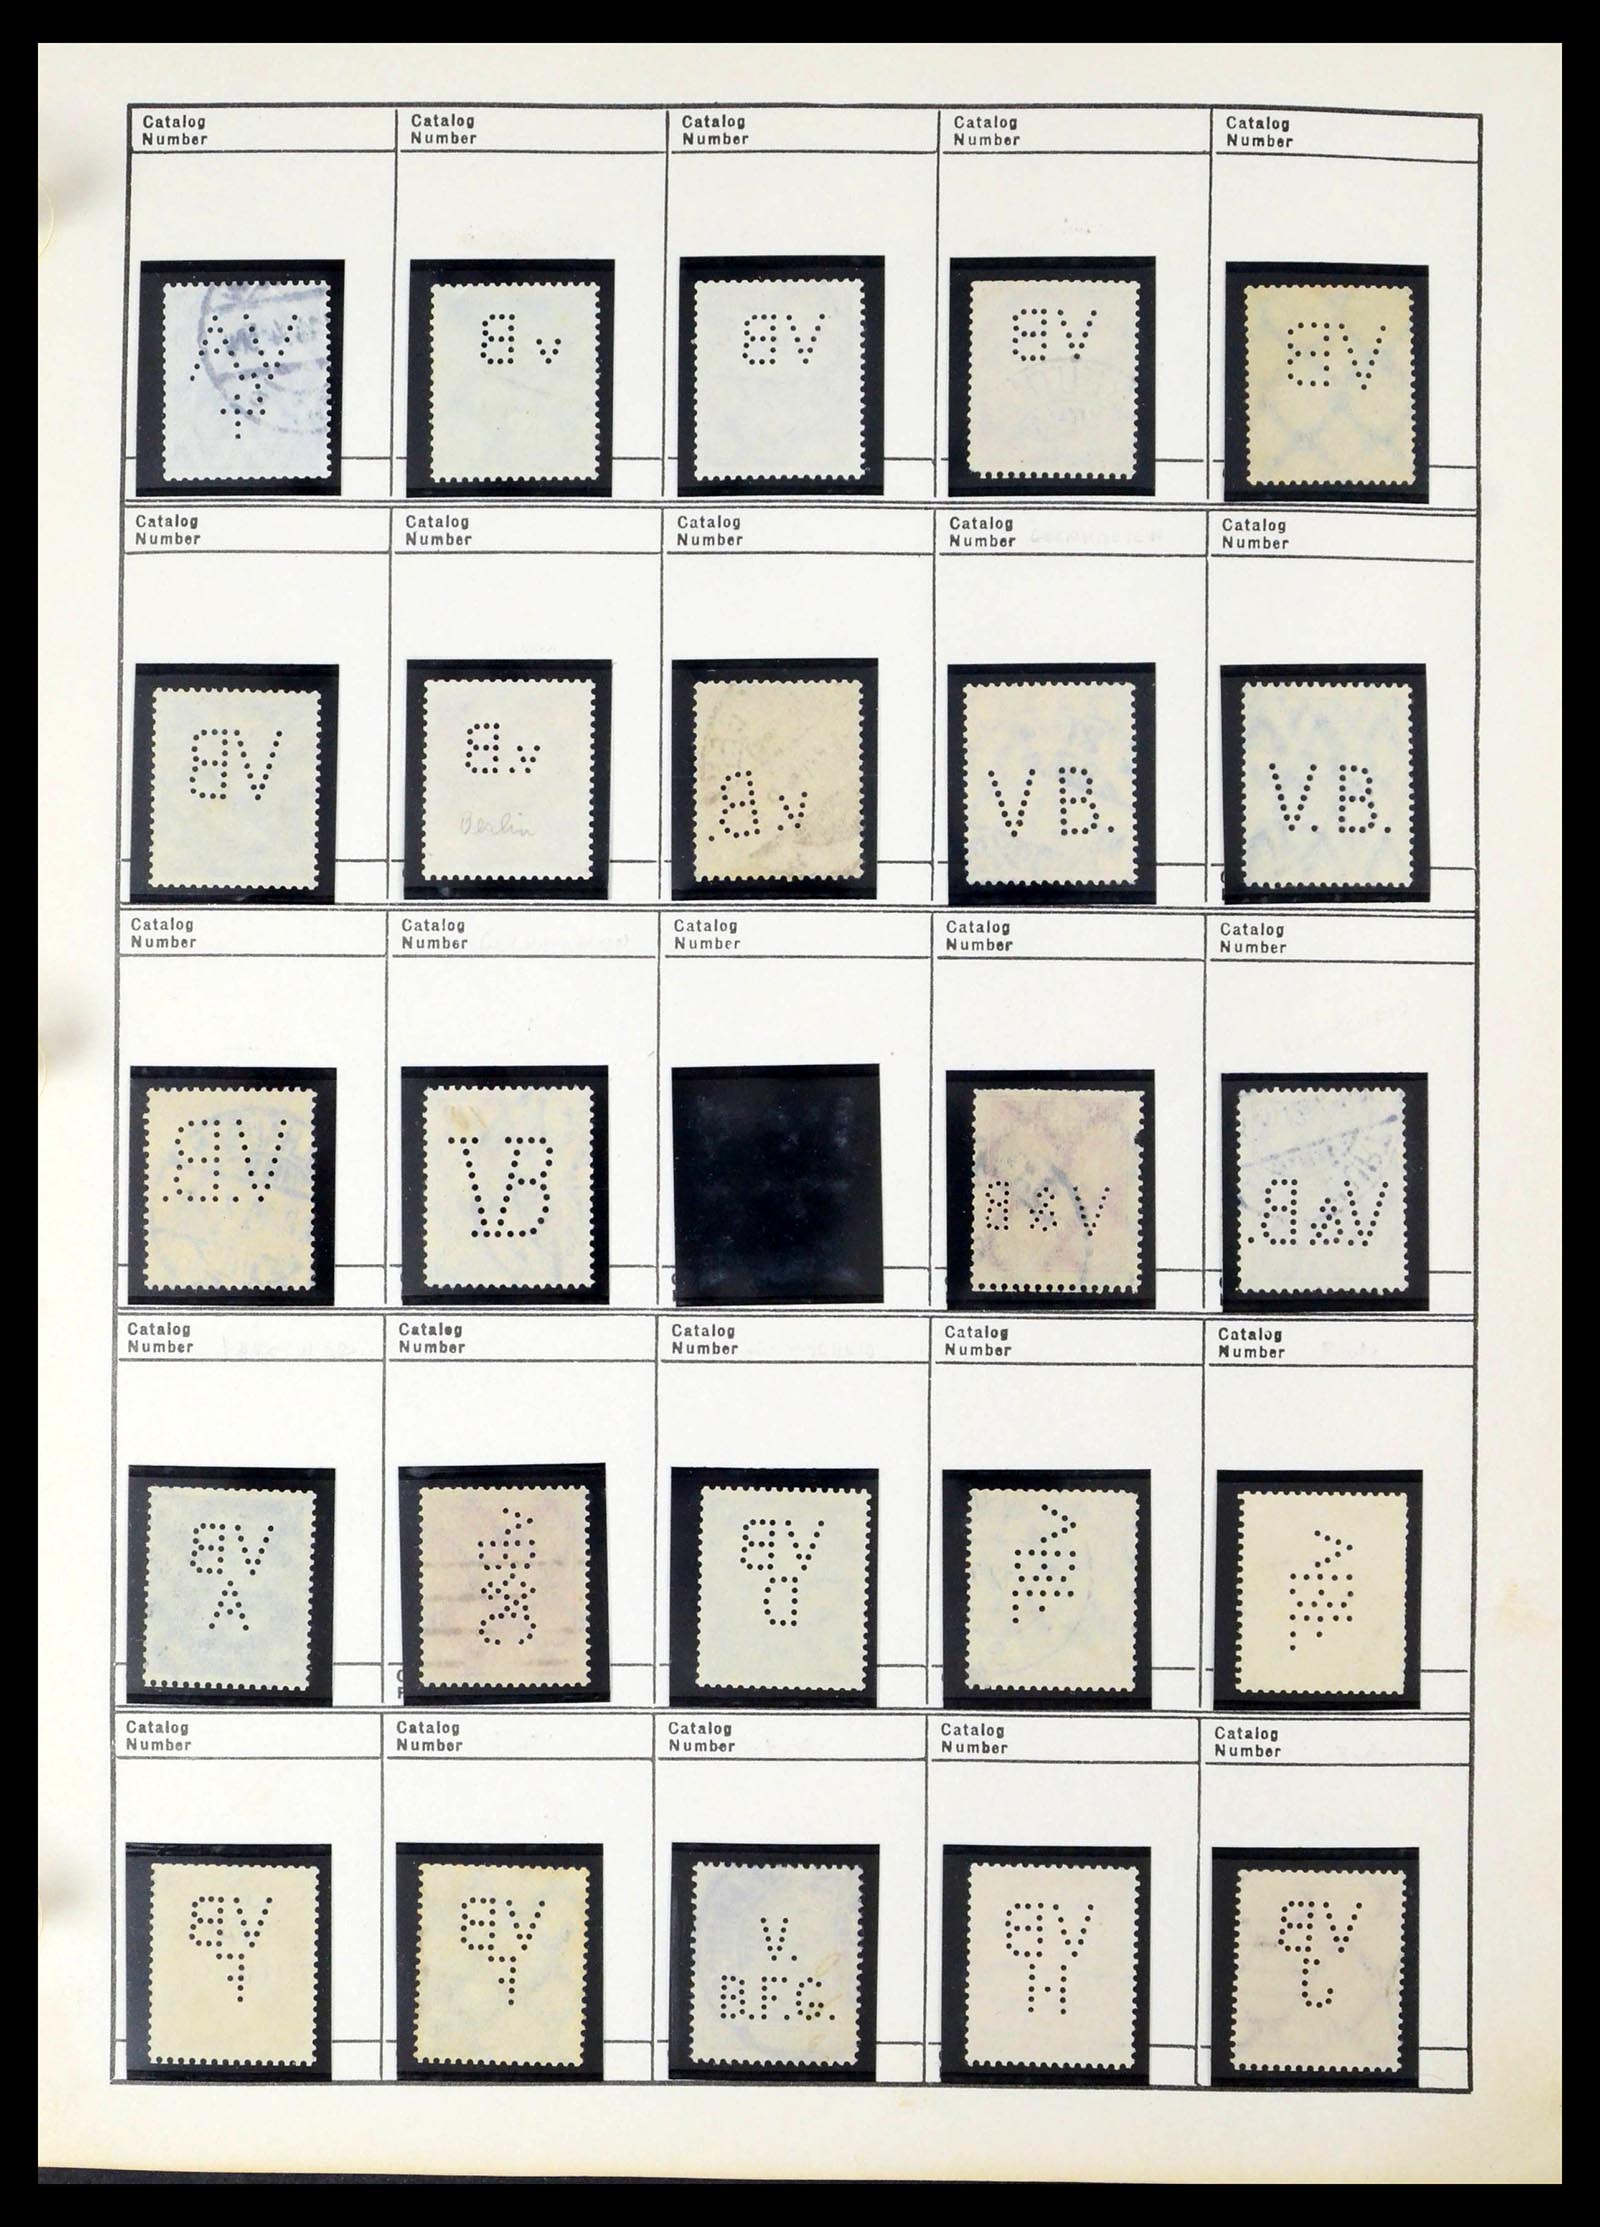 Catalog Number
Catalog Number
Catalog Number
Catalog Number
Catalog Number
BV
BV
BV
BV
Catalog Number
Catalog Number
Catalog Number
Catalog Number
Catalog Number
BV
B.v
Berlin
.B v
V B.
V.B.
Catalog Number
Catalog Number
Catalog Number
Catalog Number
Catalog Number
.B.V
VB
B & V
.B.&V
Catalog Number
Catalog Number
Catalog Number
Catalog Number
Catalog Number
BV
A
BV
D
Catalog Number
Catalog Number
Catalog Number
Catalog Number
Catalog Number
BV
F
BV
F
V.
B.F.G.
BV
H
BV
J